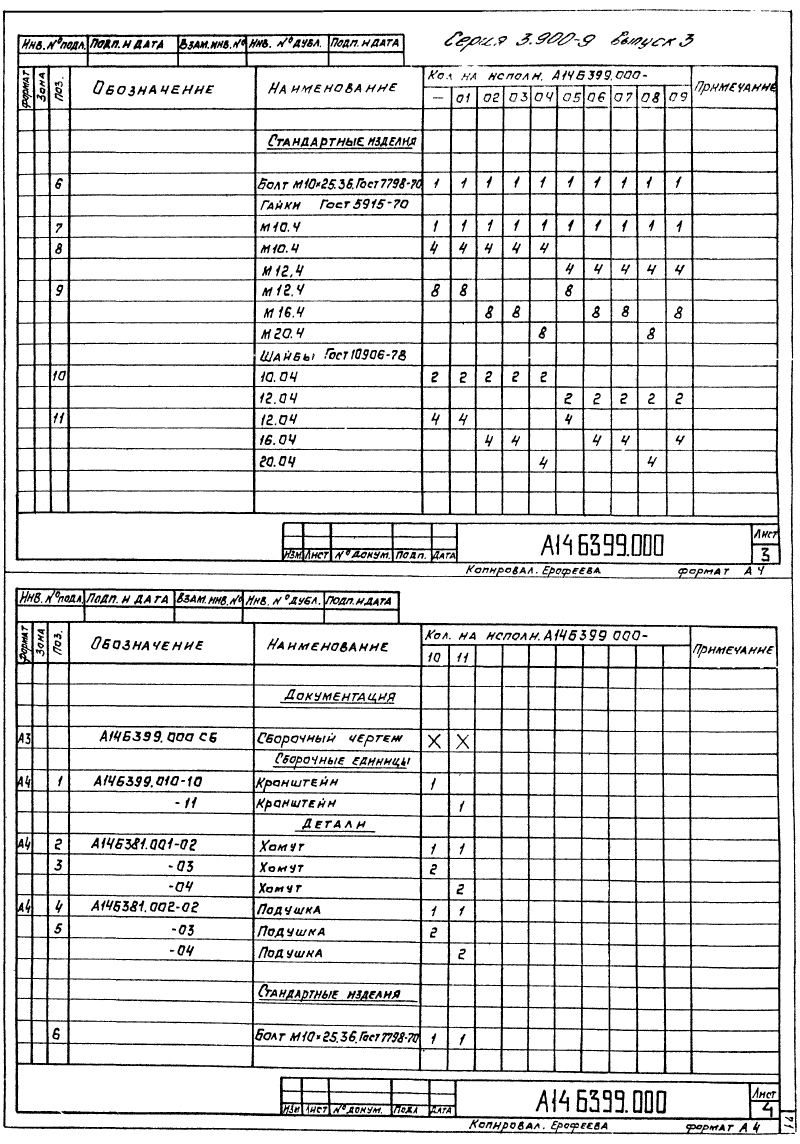 Серия 3.900-9 выпуск 3
Инв. № подл. Подп. и дата Взам. инв. № Инв. № дубл. Подп. и дата
Формат Зона Поз. Обозначение Наименование Кол. на исполн. А14Б399.000- Примечание
— 01 02 03 04 05 06 07 08 09
Стандартные изделия
6 Болт М10×25.36. Гост 7798-70 1 1 1 1 1 1 1 1 1 1
Гайки Гост 5915-70
7 М10.4 1 1 1 1 1 1 1 1 1 1
8 М10.4 4 4 4 4 4
М12.4 4 4 4 4 4
9 М12.4 8 8 8
М16.4 8 8 8 8 8
М20.4 8 8
Шайбы Гост 10906-78
10 10.04 2 2 2 2 2
12.04 2 2 2 2 2
11 12.04 4 4 4
16.04 4 4 4 4 4
20.04 4 4
Изм. Лист № докум. Подп. Дата А14Б399.000 Лист 3
Копировал. Ерофеева формат А4
Инв. № подл. Подп. и дата Взам. инв. № Инв. № дубл. Подп. и дата
Формат Зона Поз. Обозначение Наименование Кол. на исполн. А14Б399 000- Примечание
10 11
Документация
А3 А14Б399.000 СБ Сборочный чертеж X X
Сборочные единицы
А4 1 А14Б399.010-10 Кронштейн 1
-11 Кронштейн 1
Детали
А4 2 А14Б381.001-02 Хомут 1 1
3 -03 Хомут 2
-04 Хомут 2
А4 4 А14Б381.002-02 Подушка 1 1
5 -03 Подушка 2
-04 Подушка 2
Стандартные изделия
6 Болт М10×25.36. Гост 7798-70 1 1
Изм Лист № докум. Подп Дата А14Б399.000 Лист 4
Копировал. Ерофеева формат А4
14